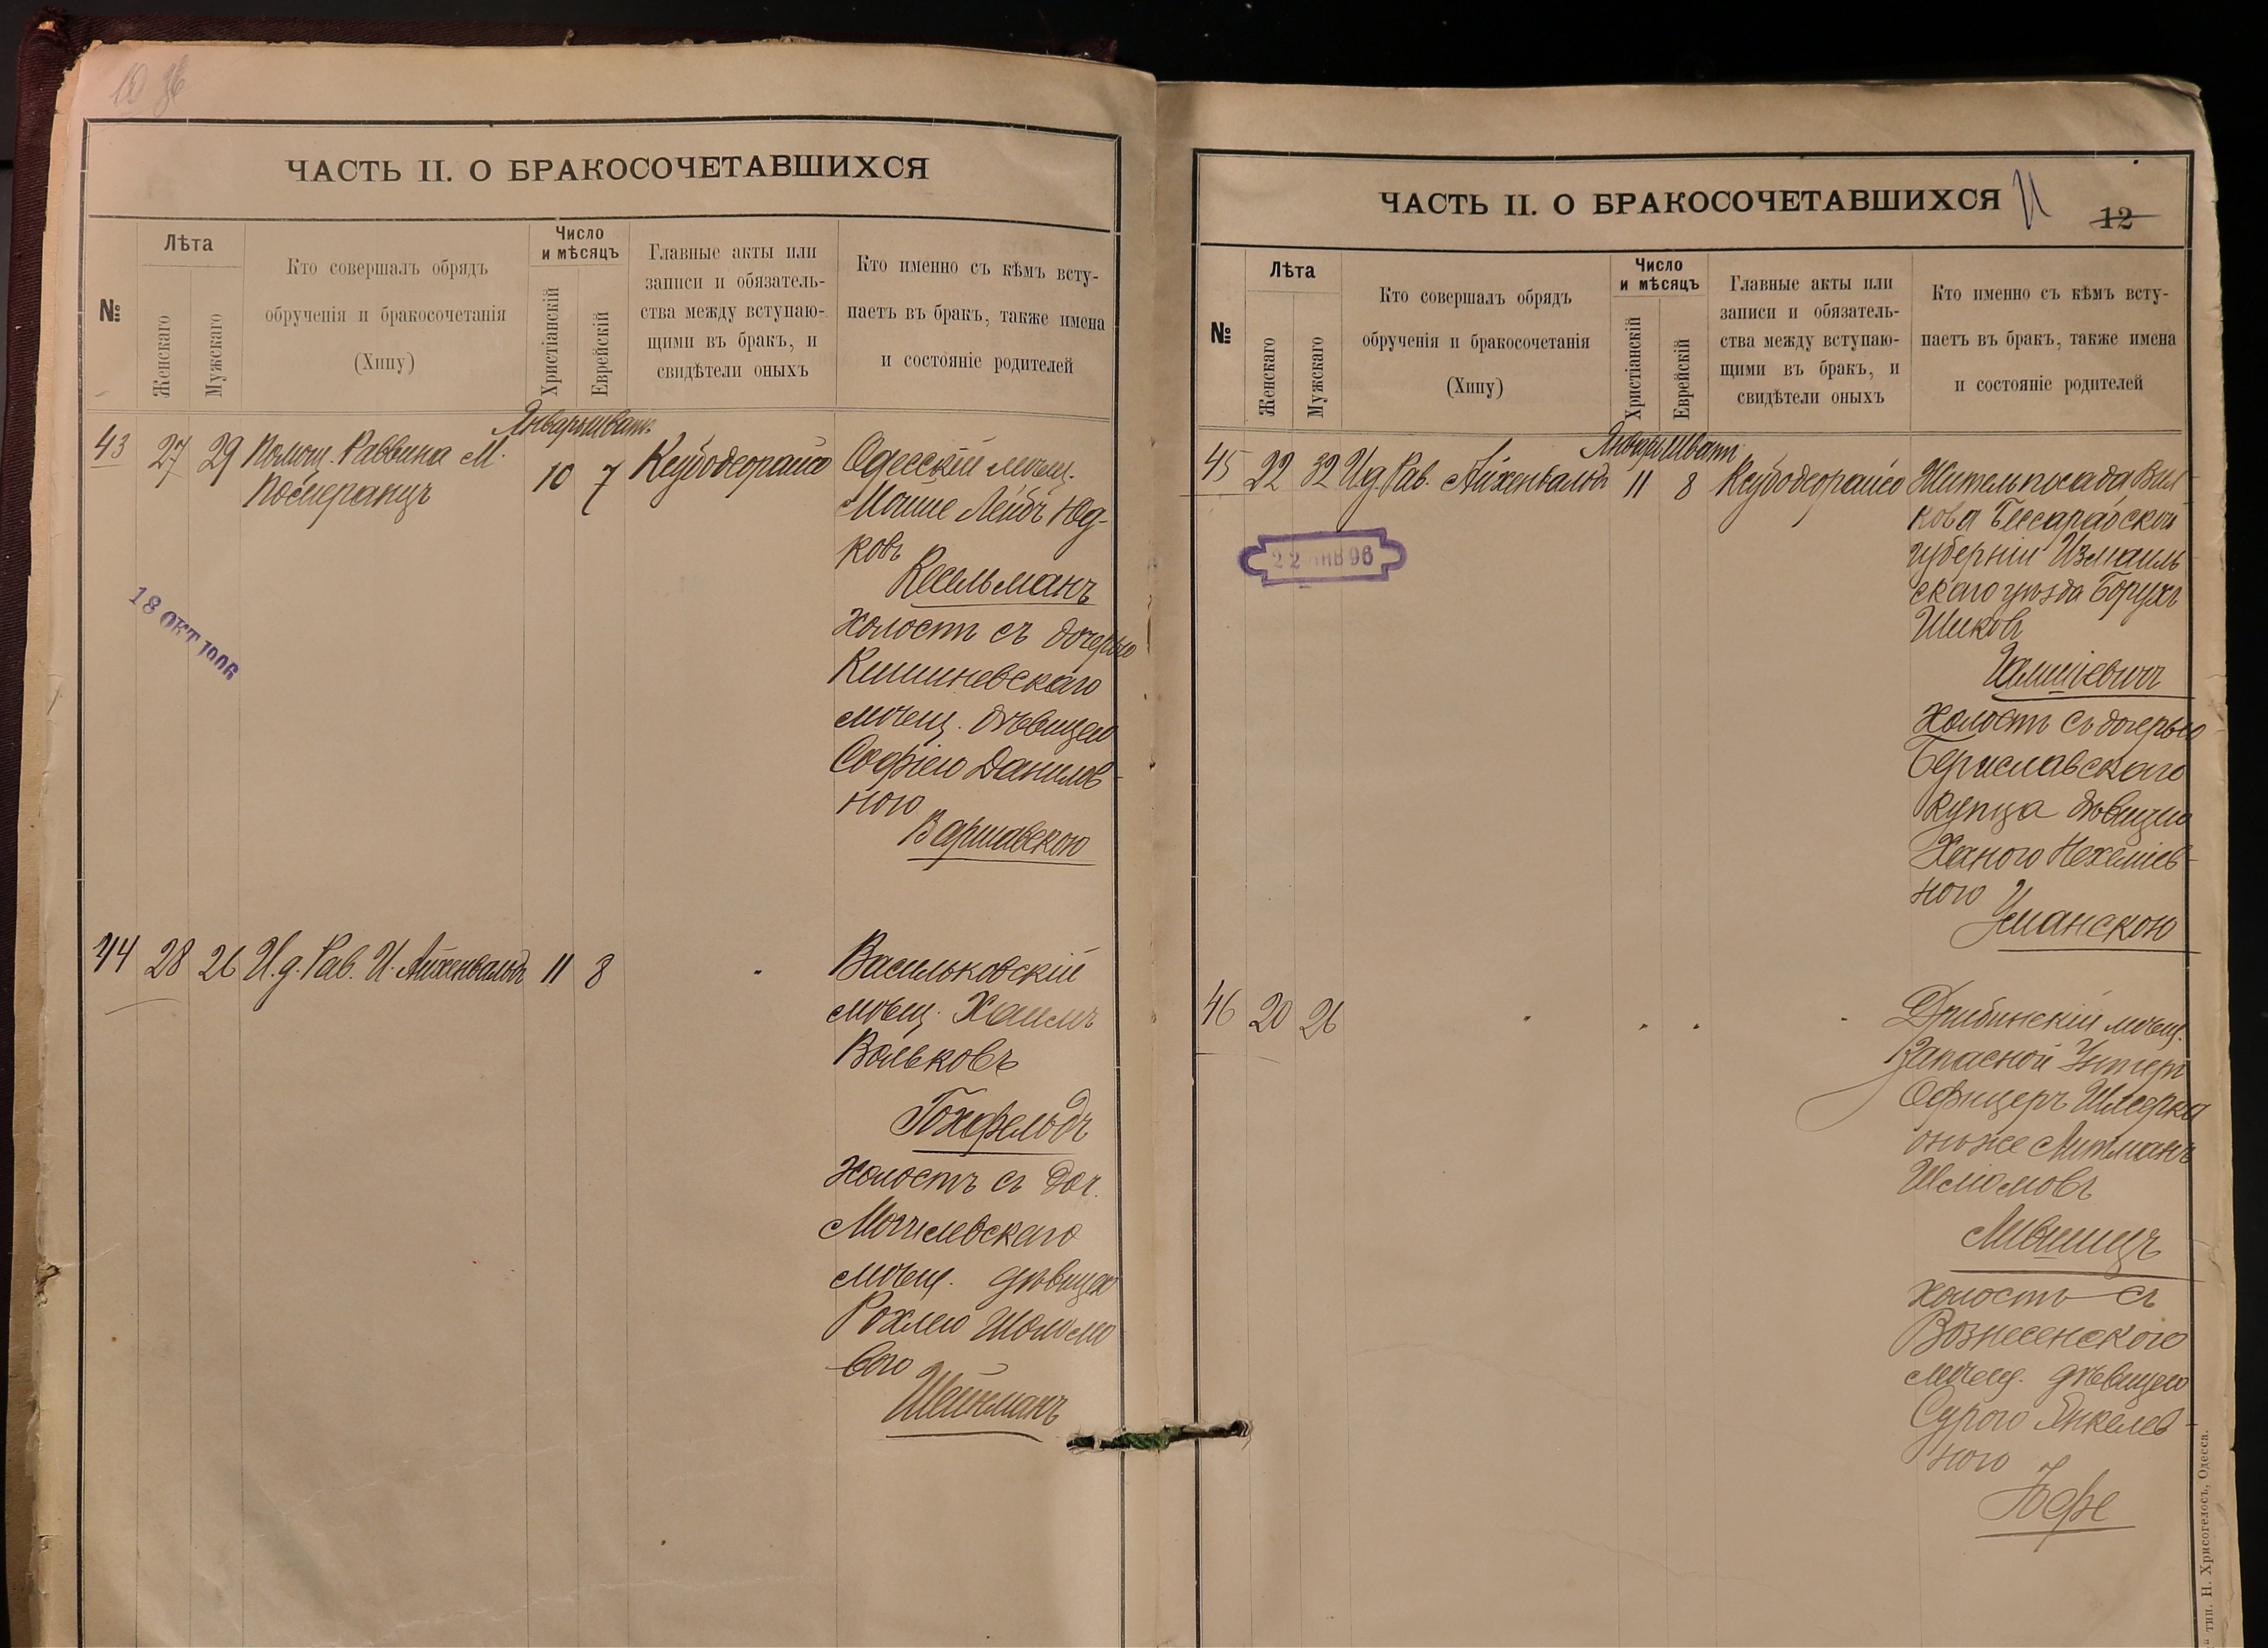 ЧАСТЬ II. О БРАКОСОЧЕТАВШИХСЯ
№
Лѣта
Женскаго
Мужскаго
Кто совершалъ обрядъ
обрученія и бракосочетанія
(Хипу)
Число
и мѣсяцъ
Христіанскій
Еврейскій
Главные акты или
записи и обязатель-
ства между вступаю-
щими въ бракъ, и
свидѣтели оныхъ
Кто именно съ кѣмъ всту-
паетъ въ бракъ, также имена
и состояніе родителей
Январь Шватъ
43 27 29 Помощ. Раввина М. 10 7 Ксубодеорайсо
Померанцъ
Одесскій мѣщ.
Мошке Лейбъ Юд-
ковъ
Кесельманъ
Холостъ съ дочерью
Кишиневскаго
мѣщ. дѣвицею
Софіею Данилов-
ною
Варшавскою
18 ОКТ 1906
44 28 26 И.д. Рав. И. Айхенвальдъ 11 8 "
Васильковскій
мѣщ. Хаимъ
Вольковъ
Гохфельдъ
Холостъ съ доч.
Могилевскаго
мѣщ. дѣвицею
Рохлею Шоломо
вою
Шейнманъ
ЧАСТЬ II. О БРАКОСОЧЕТАВШИХСЯ
12
№
Лѣта
Женскаго
Мужскаго
Кто совершалъ обрядъ
обрученія и бракосочетанія
(Хипу)
Число
и мѣсяцъ
Христіанскій
Еврейскій
Главные акты или
записи и обязатель-
ства между вступаю-
щими въ бракъ, и
свидѣтели оныхъ
Кто именно съ кѣмъ всту-
паетъ въ бракъ, также имена
и состояніе родителей
Январь Шватъ
45 22 32 И.д. Рав. Айхенвальдъ 11 8 Ксубодеорайсо
22 ЯНВ 96
Житель посада Вил-
кова Бессарабской
губерніи Измаиль
скаго уѣзда Борухъ
Шиковъ
Холостъ съ дочерью
Бериславскаго
купца дѣвицею
Ханою Нехеміев-
ною
Уманскою
46 20 26 " " " "
Дрибинскій мѣщ.
Запасной Унтеръ
Офицеръ Шмерка
онъ же Литманъ
Шліомовъ
Лившицъ
холостъ съ
Вознесенскою
мѣщ. дѣвицею
Сурою Янкелев-
ною
Іофе
тип. Н. Хрисогелосъ, Одесса.